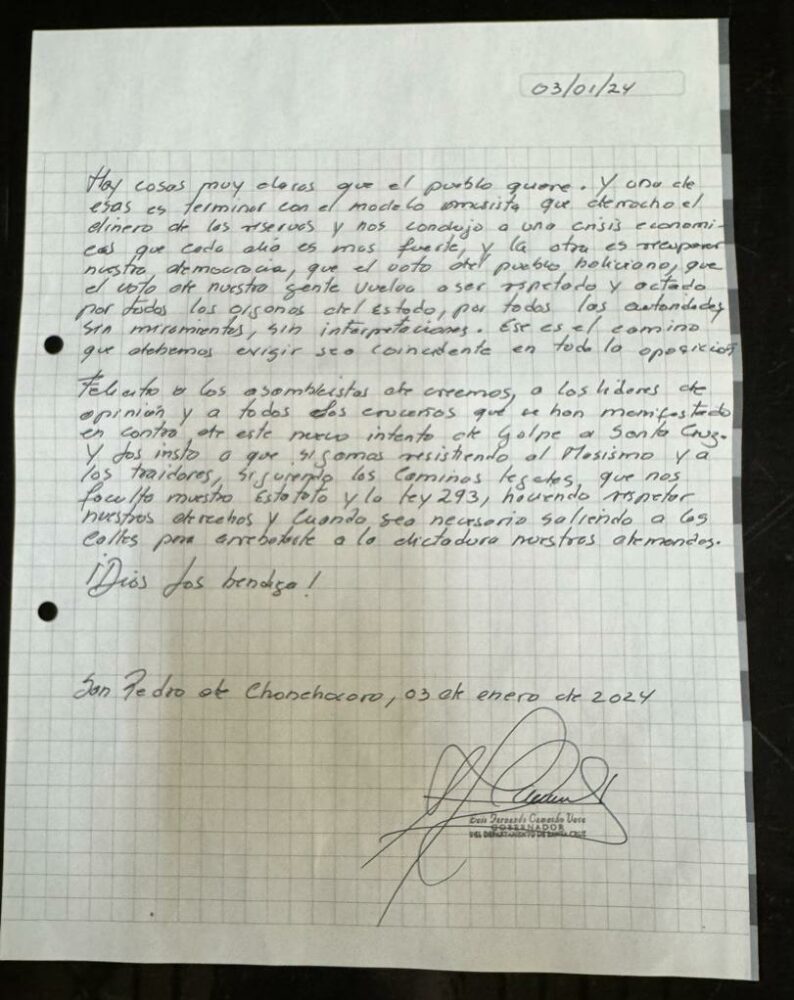 03/01/24
Hay cosas muy claras que el pueblo quiere. Y una de
esas es terminar con el modelo masista que derrocho el
dinero de las reservas y nos condujo a una crisis economi-
ca que cada día es mas fuerte, y la otra es recuperar
nuestra democracia, que el voto del pueblo boliviano, que
el voto de nuestra gente vuelva a ser respetado y acatado
por todos los órganos del Estado, por todas las autoridades
sin miramientos, sin interpretaciones. Ese es el camino
que debemos exigir sea coincidente en toda la oposición
Felicito a los asambleistas de creemos, a los lideres de
opinión y a todos los cruceños que se han manifestado
en contra de este nuevo intento de Golpe a Santa Cruz.
Y los insto a que sigamos resistiendo al Masismo y a
los traidores, siguiendo los Caminos legales, que nos
faculta nuestro Estatuto y la ley 293, haciendo respetar
nuestros derechos y Cuando sea necesario saliendo a las
calles para arrebatarle a la dictadura nuestras demandas.
¡Dios los bendiga!
San Pedro de Chonchocoro, 03 de enero de 2024
Luis Fernando Camacho Vaca
GOBERNADOR
DEL DEPARTAMENTO DE SANTA CRUZ